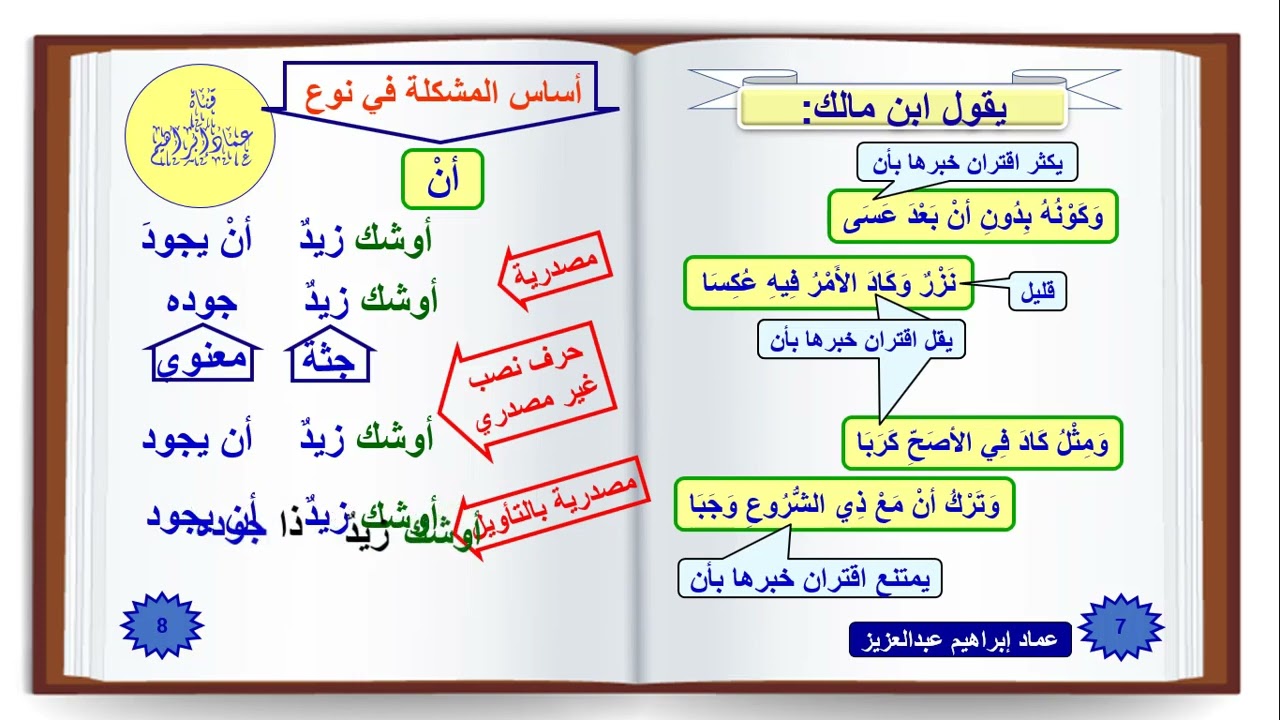 يقول ابن مالك:
يكثر اقتران خبرها بأن
وَكَوْنُهُ بِدُونِ أنْ بَعْدَ عَسَى
نَزْرٌ وَكَادَ الأَمْرُ فِيهِ عُكِسَا
قليل
يقل اقتران خبرها بأن
وَمِثْلُ كَادَ فِي الأصَحِّ كَرَبَا
وَتَرْكُ أنْ مَعْ ذِي الشُّرُوعِ وَجَبَا
يمتنع اقتران خبرها بأن
عماد إبراهيم عبدالعزيز
7
قناة
عماد إبراهيم
أساس المشكلة في نوع
أنْ
أوشك زيدٌ أنْ يجودَ
مصدرية
أوشك زيدٌ جوده
جثة معنوي
حرف نصب
غير مصدري
أوشك زيدٌ أن يجود
مصدرية بالتأويل
أوشك زيدٌ أن يجود
أوشك زيدٌ ذا جوده
8